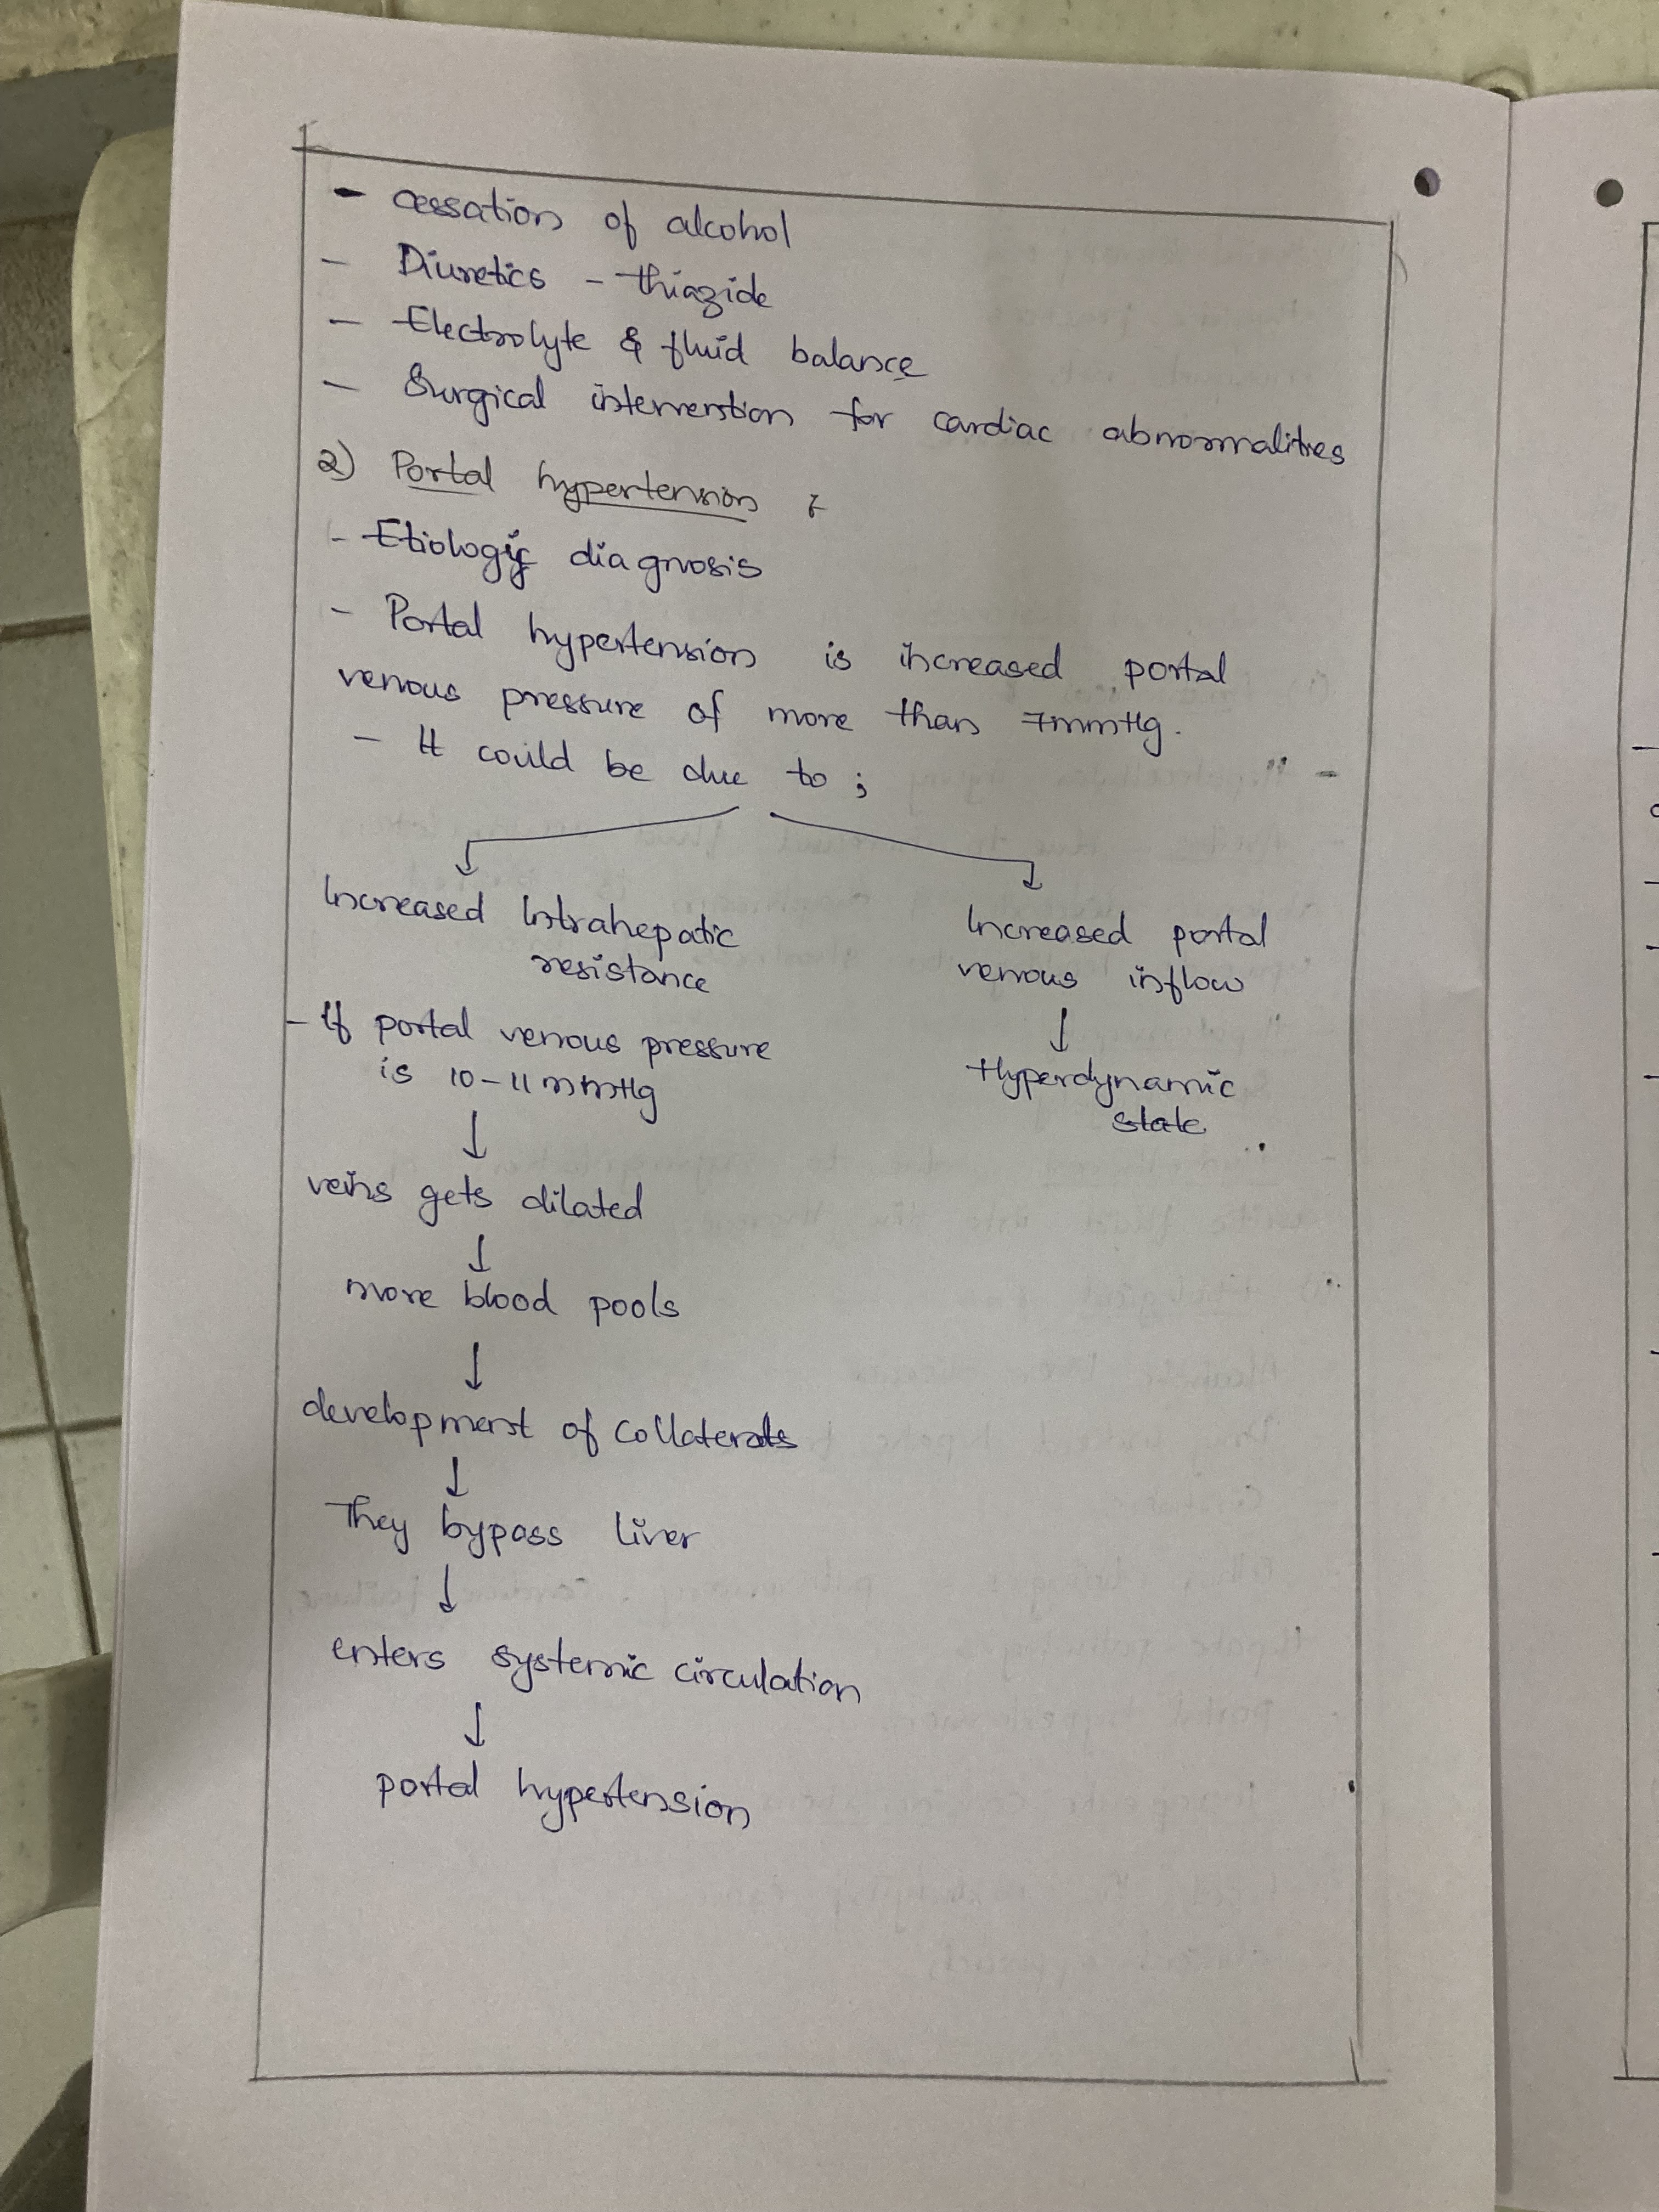 - cessation of alcohol
- Diuretics - thiazide
- Electrolyte & fluid balance
- Surgical intervention for cardiac abnormalities
2) Portal hypertension :-
- Etiologic diagnosis
- Portal hypertension is increased portal
venous pressure of more than 7mmHg.
- It could be due to ;
Increased Intrahepatic
resistance
Increased portal
venous inflow
↓
Hyperdynamic
state
- If portal venous pressure
is 10-11 mmHg
↓
veins gets dilated
↓
more blood pools
↓
development of collaterals
↓
They bypass liver
↓
enters systemic circulation
↓
portal hypertension